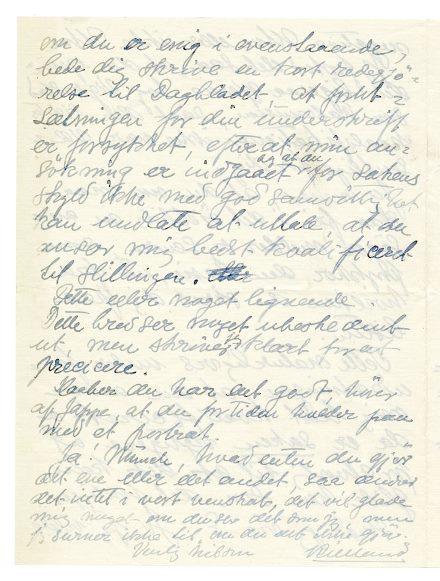 om du er enig i ovenstaaende,
bede dig skrive en kort redegjö-
relse til Dagbladet, at forut-
sætningen for din underskrift
er forrykket, efterat min an-
sökning er indgaaet og at du for sakens
skyld ikke med god samvittighet
kan undlate at uttale, at du
anser mig bedst kvalificert
til stillingen.
Dette eller noget lignende.
Dette brev ser noget ubeskedent
ut men skriver klart for at
precicere.
Haaber du har det godt, hörer
af Jappe, at du for tiden holder paa
med et portræt
Ja, Munch, hvad enten du gjör
det ene eller det andet, saa ændrer
det intet i vort venskab, det vil glæde
mig meget om du ser det som jeg, men
jeg surner ikke til, om du det ikke gjör.
Venlig hilsen
Kielland